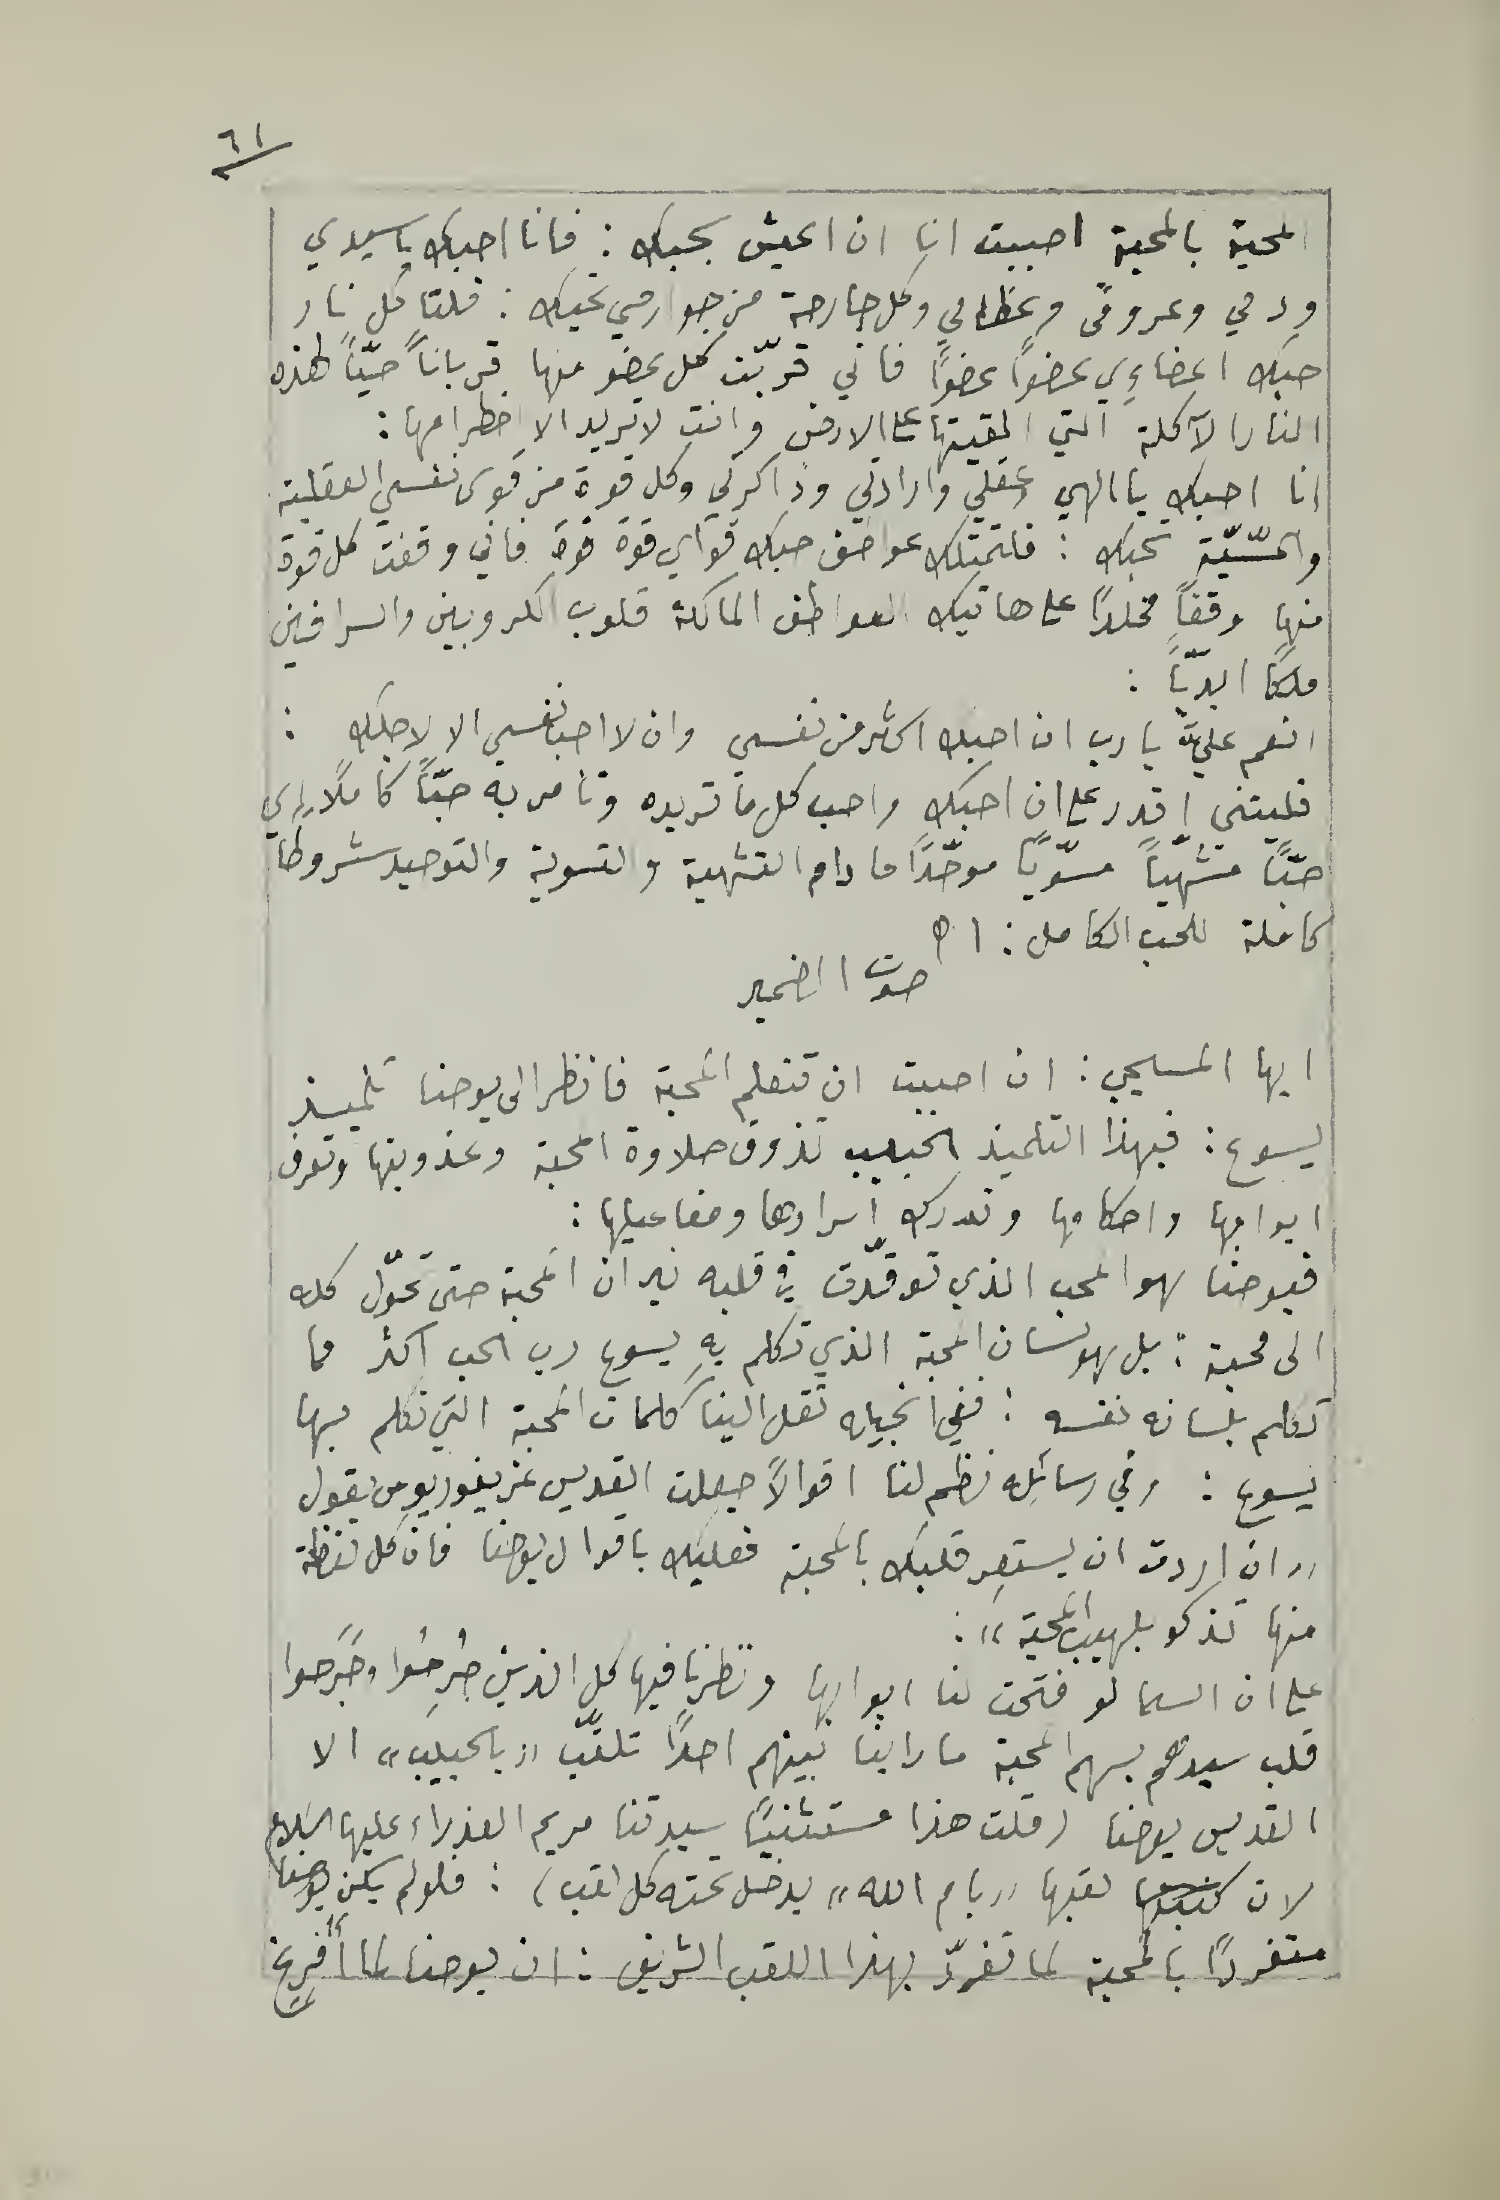 ٦١
المحبة بالمحبة احببت انا ان اعيش بحبك : فانا احبك يا سيدي
ودمي وعروقي وعظامي وكل جارحة من جوارحي تحبك : فلتاكل نار
حبك اعضاءي عضوًا عضوًا فاني قرّبت كل عضو منها قرباناً حيّاً لهذه
النار الآكلة التي القيتها على الارض وانت لا تريد الا اضطرامها :
انا احبك يا الهي وعقلي وارادتي وذاكرتي وكل قوة من قوى نفسي العقلية
والحسّيّة تحبك : فلتمتلك عواطف حبك قواي قوة قوة فاني وقفت كل قوة
منها وقفاً مخلدًا على هاتيك العواطف المالكة قلوب الكروبين والسرافين
ملكًا ابديّاً :
انعم عليّ يا رب ان احبك اكثر من نفسي وان لا احب نفسي الا لاجلك :
فليتني اقدر على ان احبك واحب كل ما تريده وتامر به حبّاً كاملًا اي
حبّاً مشهّياً مسوّياً موحّدًا ما دام التشهية والتسوية والتوحيد شروطا
كافلة للحب الكامل : اه
صوت الضمير
ايها المسيحي : ان احببت ان تتعلم المحبة فانظر الى يوحنا تلميذ
يسوع : فبهذا التلميذ الحبيب تذوق حلاوة المحبة وعذوبتها وتعرف
ابوابها واحكامها وتدرك أسرارها ومفاعيلها :
فيوحنا هو المحب الذي توقّدت في قلبه نيران المحبة حتى تحوّل كله
الى محبة : بل هو لسان المحبة الذي تكلم به يسوع رب الحب اكثر مما
تكلم بلسانه نفسه : ففي انجيله نقل الينا كلمات المحبة التي تكلم بها
يسوع : وفي رسائله نظم لنا اقوالاً جعلت القديس غريغوريوس يقول
«ان اردت ان يستعر قلبك بالمحبة فعليك باقوال يوحنا فان كل لفظة
منها تذكو بلهيب المحبة» :
على ان السما لو فتحت لنا ابوابها ونظرنا فيها كل الذين جُرِحُوا وجَرَحوا
قلب سيدهم بسهم المحبة ما راينا بينهم احدًا تلقّب «بالحبيب» الا
القديس يوحنا (قلت هذا مستثنيًا سيدتنا مريم العذراء عليها السلام
لان لقبها «بام الله» يدخل تحته كل لقب) : فلو لم يكن يوحنا
متفردًا بالمحبة لما تفرّد بهذا اللقب الشريف : ان يوحنا لما